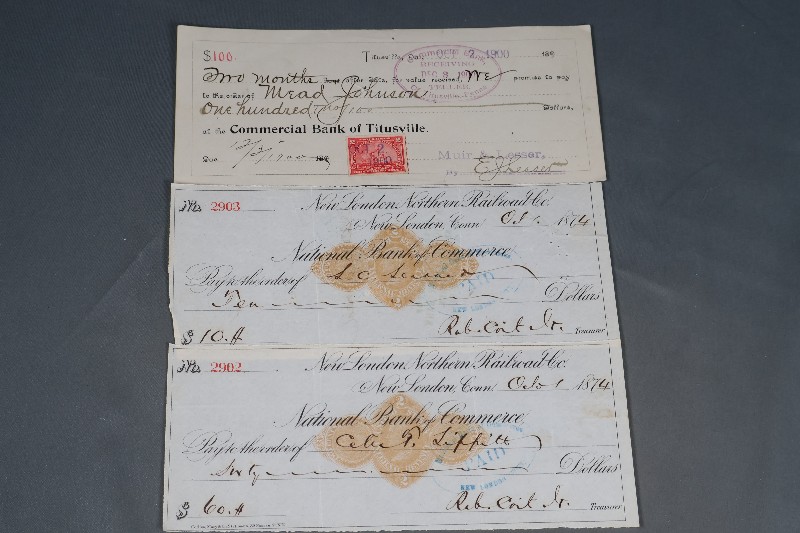 $100 Titusville, Pa. Oct 2 1900 189
Two months after date, for value received, We promise to pay
to the order of Mead Johnson
One hundred no/100 Dollars,
at the Commercial Bank of Titusville.
Due 12/3/1900 189
Muir & Lesser,
By E Lesser
Commercial Bank,
RECEIVING
DEC 3
TELLER
No. 2903 New London Northern Railroad Co.
New London, Conn Oct 1 1874
National Bank of Commerce
Pay to the order of
Ten Dollars
$10.# Rob. Coit Jr. Treasurer
PAID
NEW LONDON
No. 2902 New London Northern Railroad Co.
New London, Conn Oct 1 1874
National Bank of Commerce
Pay to the order of Celia T. Lippitt
Sixty Dollars
$60.# Rob. Coit Jr. Treasurer
PAID
NEW LONDON